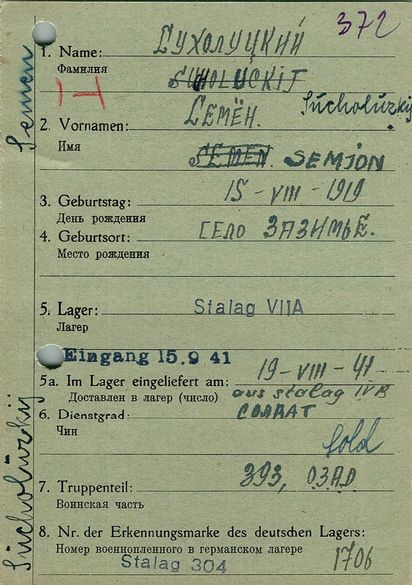 372
1. Name: СУХОЛУЦКИЙ
Фамилия SUHOLUCKIJ
Semen
H
2. Vornamen: СЕМЁН. Súcholúzkij
Имя SEMEN. SEMJON
3. Geburtstag: 15-VIII-1919
День рождения
4. Geburtsort: СЕЛО ЗАЗИМЬЕ.
Место рождения
5. Lager: Stalag VIIA
Лагерь
Eingang 15.9 41
5a. Im Lager eingeliefert am: 19-VIII-41
Доставлен в лагерь (число) aus Stalag IVB
6. Dienstgrad: СОЛДАТ
Чин Sold
7. Truppenteil: 393, ОЗАД
Воинская часть
8. Nr. der Erkennungsmarke des deutschen Lagers:
Номер военнопленного в германском лагере
Stalag 304 1706
Súcholúzkij